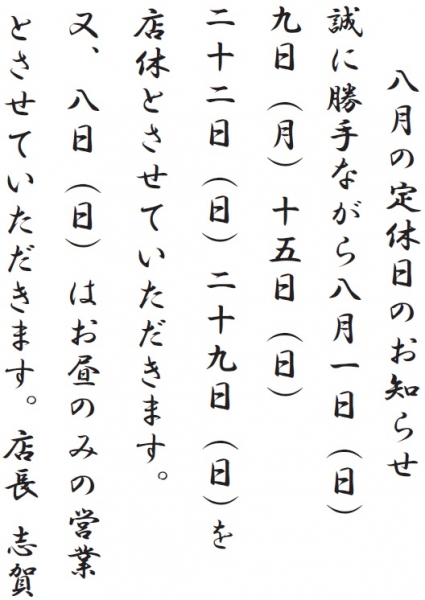 八月の定休日のお知らせ
誠に勝手ながら八月一日（日）
九日（月）十五日（日）
二十二日（日）二十九日（日）を
店休とさせていただきます。
又、八日（日）はお昼のみの営業
とさせていただきます。店長 志賀